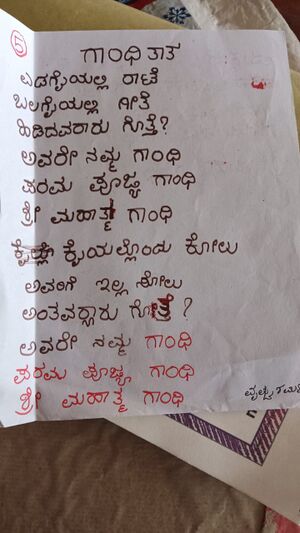 ೫
ಗಾಂಧಿ ತಾತ
ಎಡಗೈಯಲ್ಲಿ ರಾಟೆ
ಬಲಗೈಯಲ್ಲಿ ಗೀತೆ
ಹಿಡಿದವರಾರು ಗೊತ್ತೆ?
ಅವರೇ ನಮ್ಮ ಗಾಂಧಿ
ಪರಮ ಪೂಜ್ಯ ಗಾಂಧಿ
ಶ್ರೀ ಮಹಾತ್ಮ ಗಾಂಧಿ
ಕೈಯಲ್ಲೊಂದು ಕೋಲು
ಅವರಿಗೆ ಇಲ್ಲ ಸೋಲು
ಅಂತವರ‍್ಯಾರು ಗೊತ್ತೆ?
ಅವರೇ ನಮ್ಮ ಗಾಂಧಿ
ಪರಮ ಪೂಜ್ಯ ಗಾಂಧಿ
ಶ್ರೀ ಮಹಾತ್ಮ ಗಾಂಧಿ